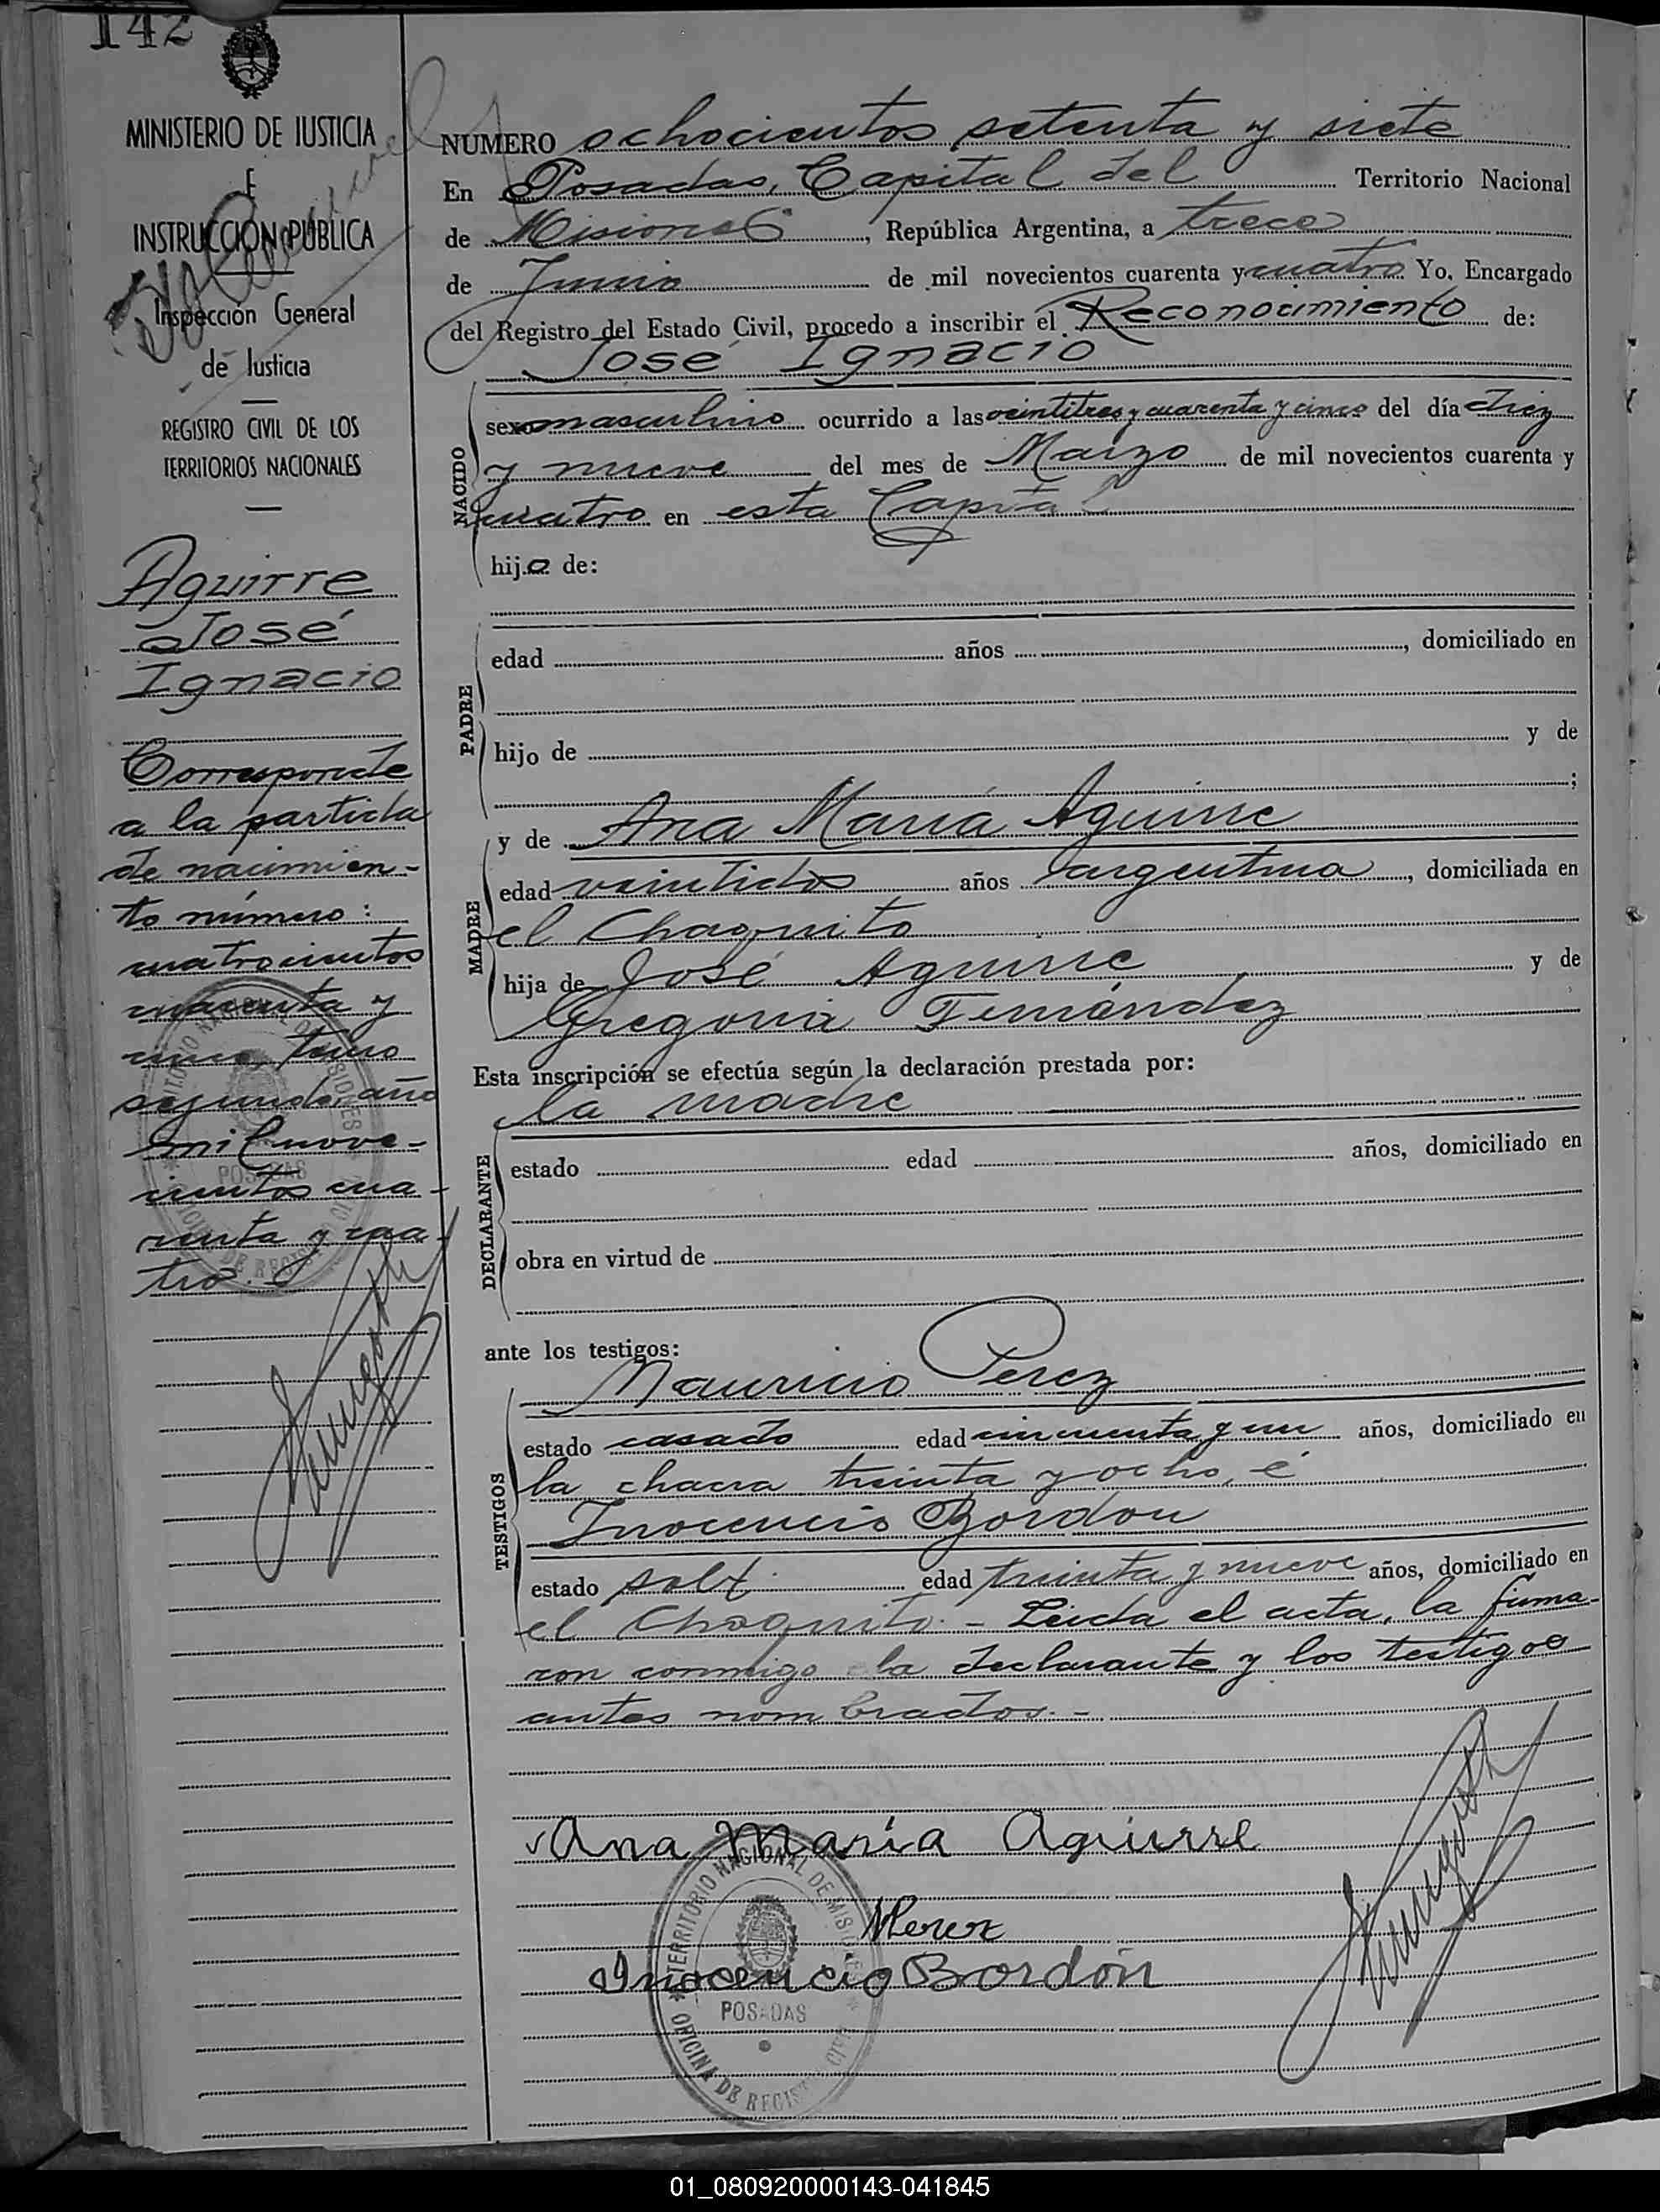 142
MINISTERIO DE JUSTICIA
E
INSTRUCCION PUBLICA
Inspección General
de Justicia
REGISTRO CIVIL DE LOS
TERRITORIOS NACIONALES
Aguirre
José
Ignacio
Corresponde
a la partida
de nacimien-
to número:
cuatrocientos
cuarenta y
cinco, tomo
segundo, año
mil nove-
cientos cua-
renta y cua-
tro.
NUMERO ochocientos setenta y siete
En Posadas, Capital del Territorio Nacional
de Misiones, República Argentina, a trece
de Junio de mil novecientos cuarenta y cuatro Yo, Encargado
del Registro del Estado Civil, procedo a inscribir el Reconocimiento de:
José Ignacio
NACIDO
sexo masculino ocurrido a las veintitres y cuarenta y cinco del día diez
y nueve del mes de Marzo de mil novecientos cuarenta y
cuatro en esta Capital
hijo de:
PADRE
edad años , domiciliado en
hijo de y de
;
MADRE
y de Ana María Aguirre
edad veintidos años argentina, domiciliada en
el Chaquito
hija de José Aguirre y de
Gregoria Fernández
Esta inscripción se efectúa según la declaración prestada por:
la madre
DECLARANTE
estado edad años, domiciliado en
obra en virtud de
ante los testigos:
TESTIGOS
Mauricio Perez
estado casado edad cincuenta y un años, domiciliado en
la chacra treinta y ocho, é
Inocencio Bordon
estado solt. edad treinta y nueve años, domiciliado en
el Chaquito.- Leida el acta, la firma-
ron conmigo la declarante y los testigos
antes nombrados.-
Ana María Aguirre
MPerez
Inocencio Bordón
TERRITORIO NACIONAL DE MISIONES
POSADAS
OFICINA DE REGISTRO CIVIL
01_080920000143-041845